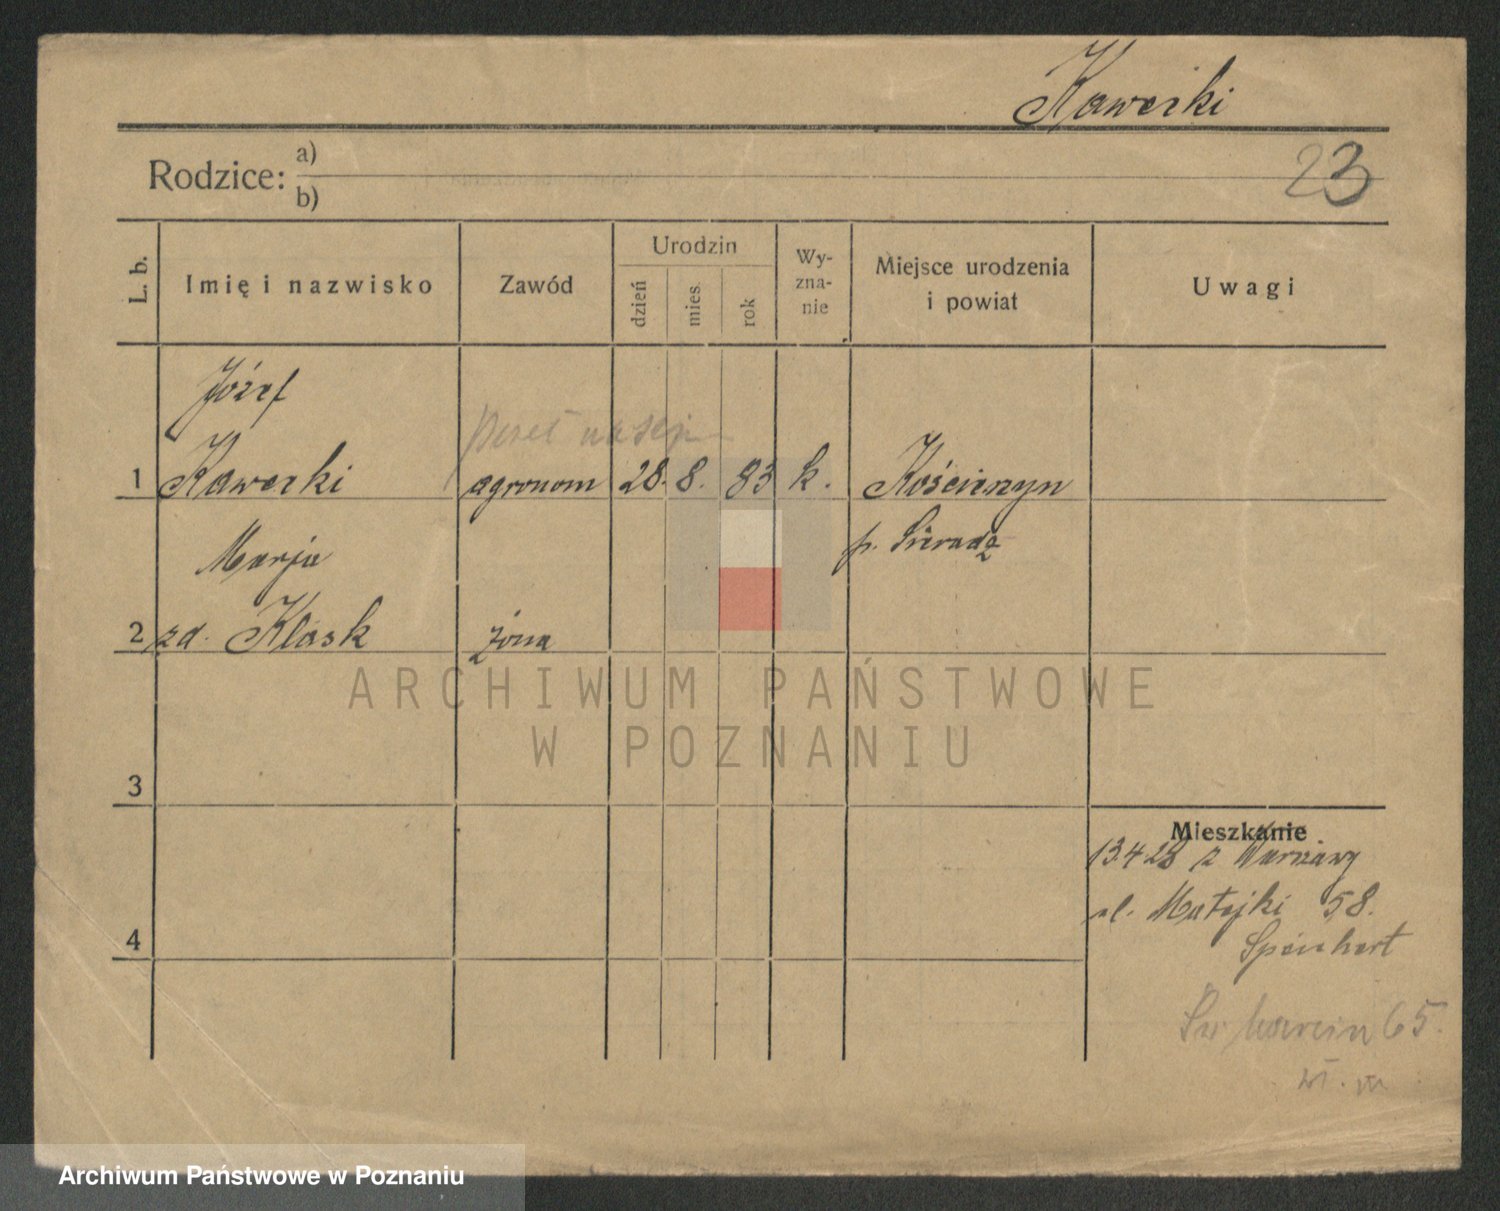 Kawecki
23
Rodzice: a)
b)
L. b.
Imię i nazwisko
Zawód
Urodzin
dzień
mies.
rok
Wy-
zna-
nie
Miejsce urodzenia
i powiat
Uwagi
Józef
poseł na sejm
1 Kawecki agronom 28. 8. 83 k. Kościerzyn
p. Sieradz
Marja
2 zd. Klask żona
3
Mieszkanie
13.4 28 z Warszawy
ul. Matejki 58.
4
Św Marcin 65.
ARCHIWUM PAŃSTWOWE
W POZNANIU
Archiwum Państwowe w Poznaniu